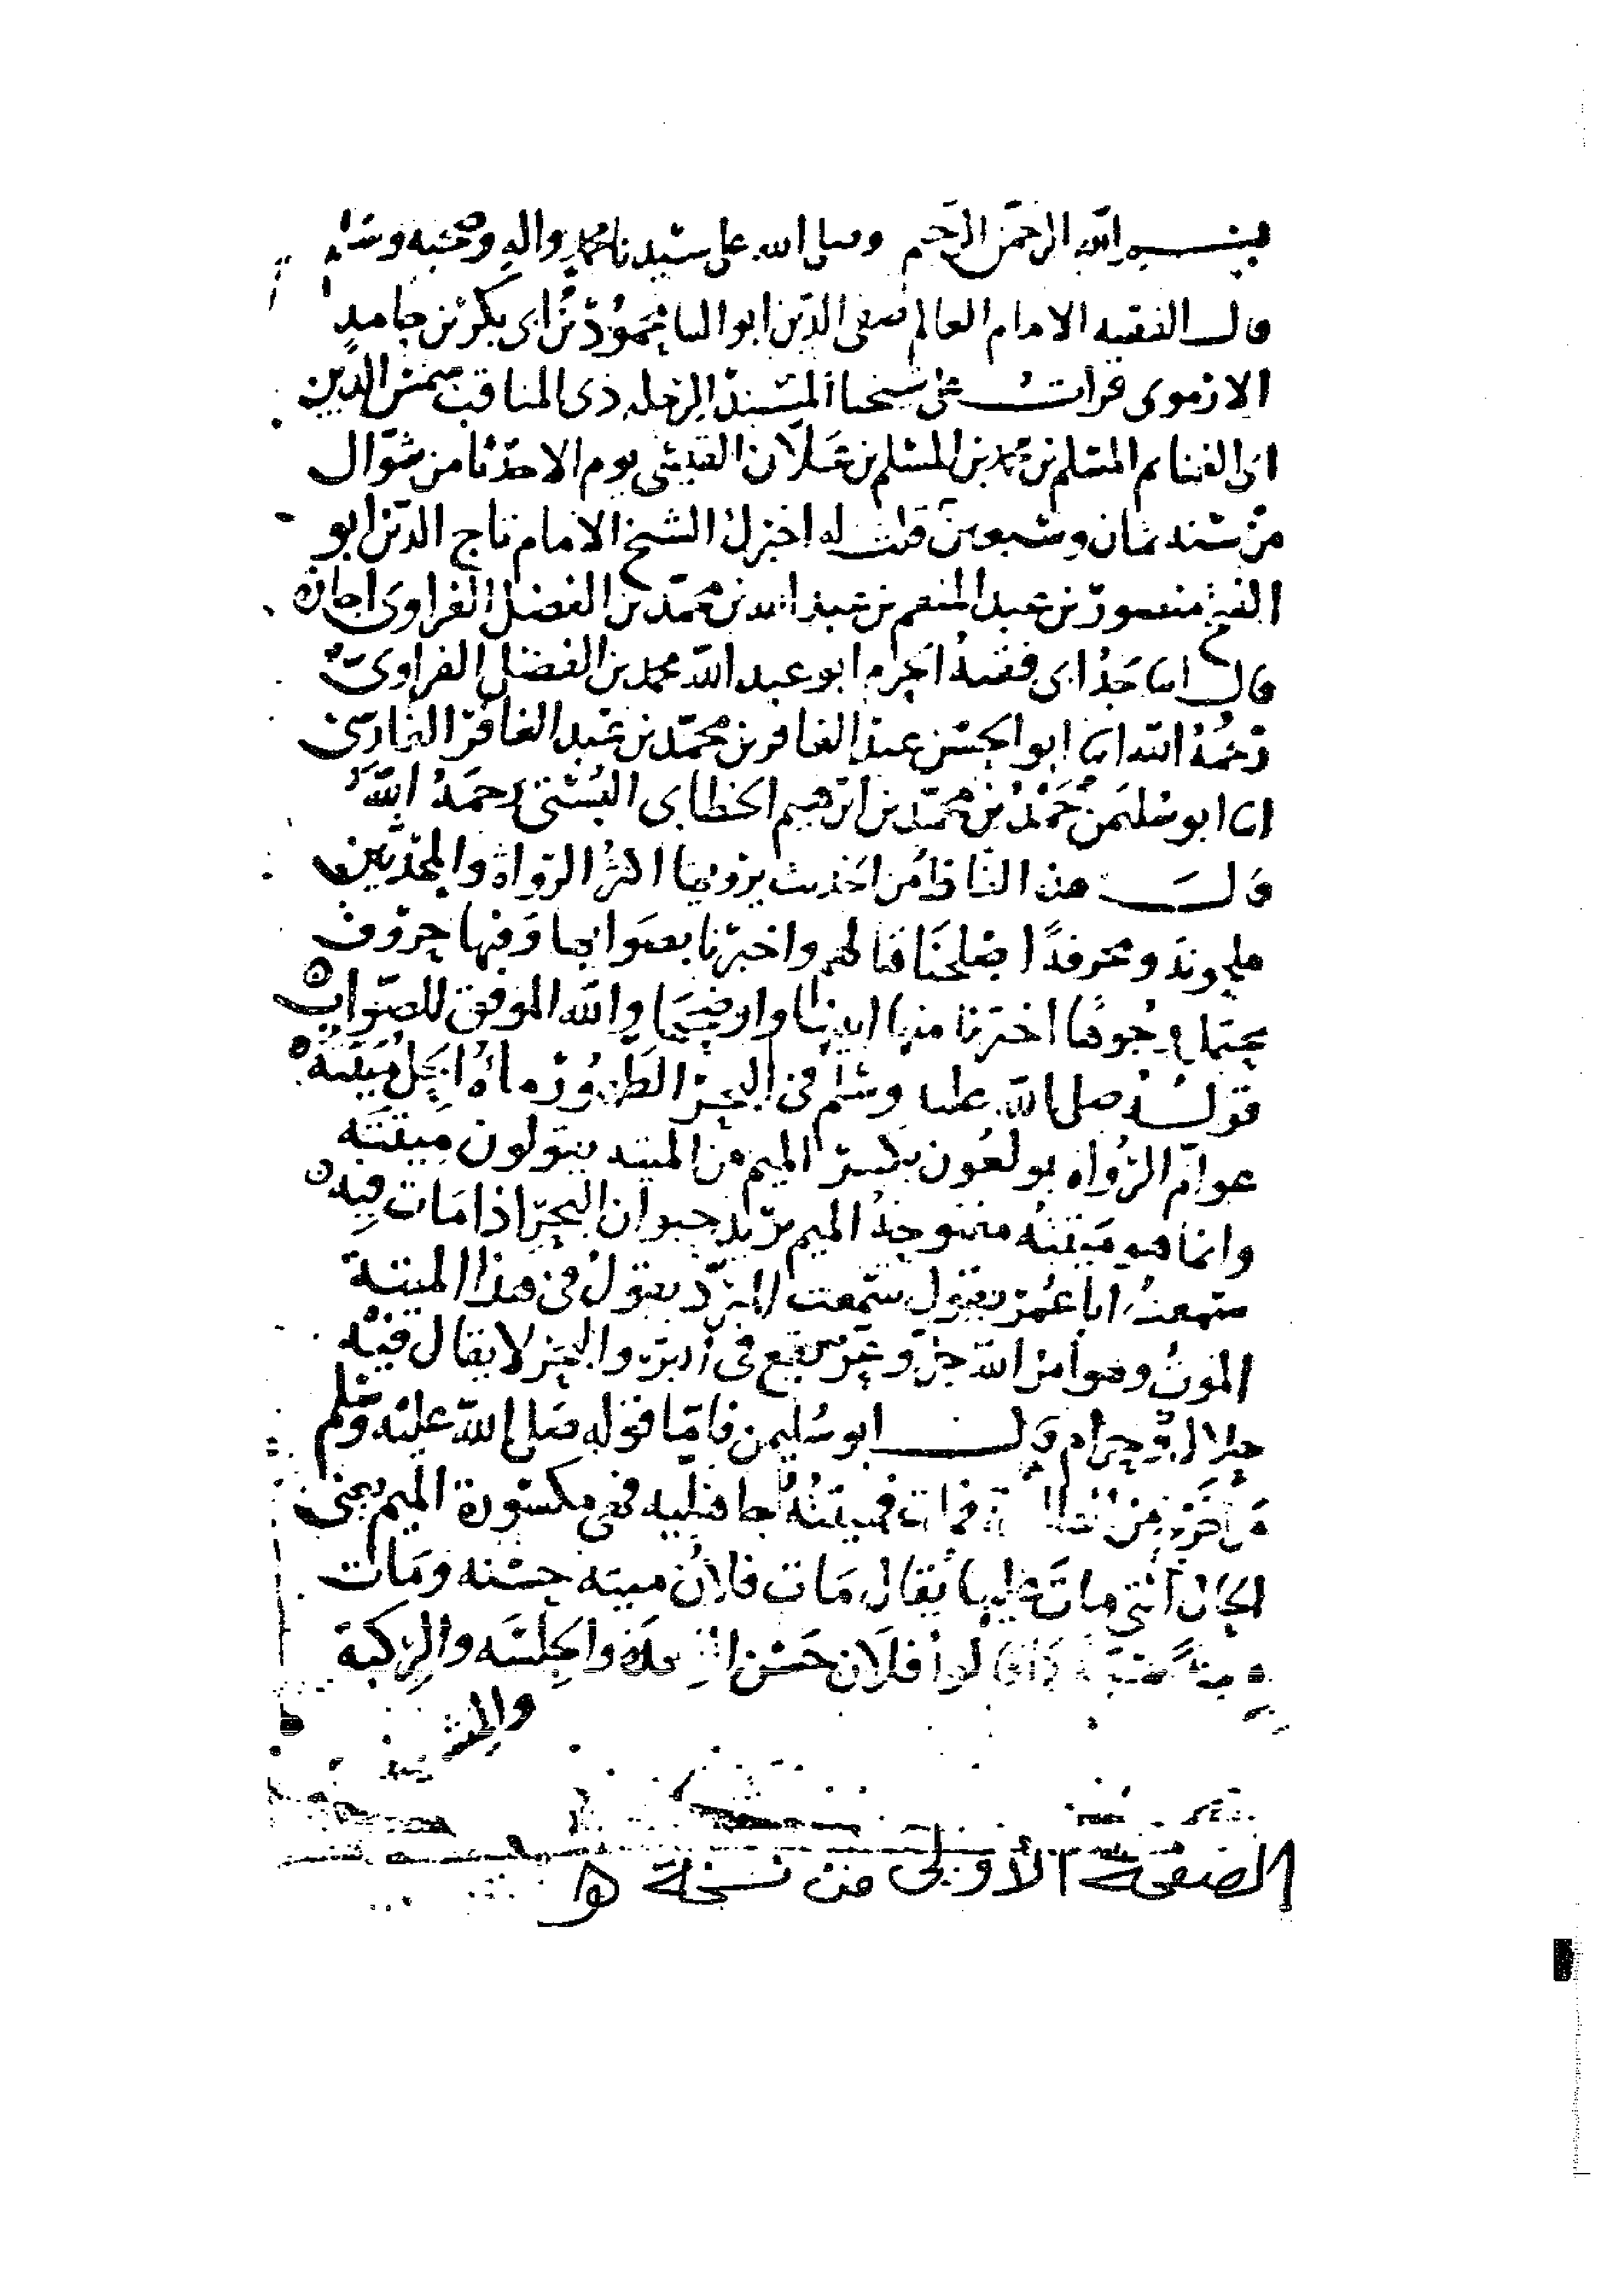 بسم الله الرحمن الرحيم وصلى الله على سيدنا محمد واله وصحبه وسلم
قال الفقيه الامام العالم صفي الدين ابو الثنا محمود بن ابي بكر بن حامد
الارموي قرات على شيخنا المسند الرحله ذي المناقب شمس الدين
ابي الغنايم المسلم بن محمد بن المسلم بن علان القيسي يوم الاحد ثامن شوال
من سنه ثمان وسبعين قلت له اخبرك الشيخ الامام تاج الدين ابو
الفتح منصور بن عبد المنعم بن عبد الله بن محمد بن الفضل الفراوي اجازه
قال انا جد ابي فقيه الحرم ابو عبد الله محمد بن الفضل الفراوي
رحمه الله انا ابو الحسين عبد الغافر بن محمد بن عبد الغافر الفارسي
انا ابو سليمن حمد بن محمد بن ابرهيم الخطابي البستي رحمه الله
قال هذه الفاظ من الحديث يرويها اكثر الرواة والمحدثين
ملحونة ومحرفة اصلحنا فيها لهم واخبرنا بصوابها وفيها حروف
يحتمل وجوها اخترنا منها ابينها واوضحها والله الموفق للصواب
قوله صلى الله عليه وسلم في البحر الطهور ماؤه الحل ميتته
عوام الرواه يولعون بكسر الميم من الميته يقولون ميتته
وانما هو ميتته مفتوحة الميم يريد حيوان البحر اذا مات فيه
سمعت ابا عمر يقول سمعت المبرد يقول في هذا الميتة
الموت وهو امر الله جل وعز يقع في البر والبحر لا يقال فيه
حلال ولا حرام قال ابو سليمن فاما قوله صلى الله عليه وسلم
من خرج من فمات فميتته جاهلية فهي مكسورة الميم يعني
الحال التي مات عليها يقال مات فلان ميته حسنه ومات
ميتة كما قالوا فلان حسن القعدة والجلسه والركبة
والمشية
الصفحة الأولى من نسخة هـ